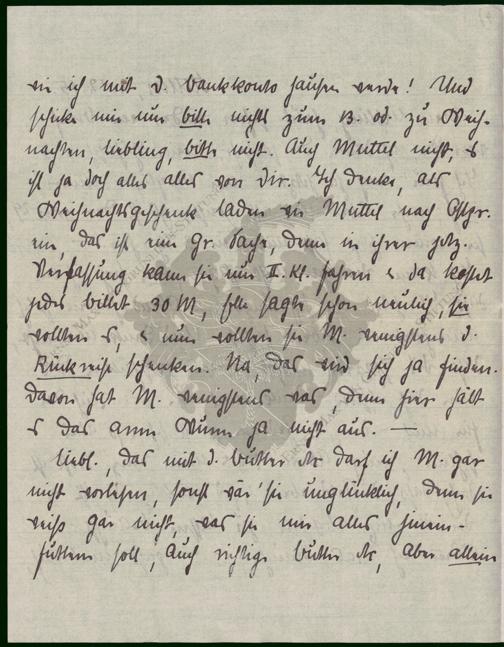 wie ich mit d. Bankkonto hausen werde! Und
schicke mir nur bitte nichts zum 13. od. zu Weih-
nachten, Liebling, bitte nicht. Auch Muttel nicht, es
ist ja doch alles alles von Dir. Ich denke, als
Weihnachtsgeschenk laden wir Muttel nach Ostpr.
ein, das ist eine gr. Sache, denn in ihrer jetz.
Verfassung kann sie nur II. Kl. fahren & da kostet
jedes Billet 30 M, sagte schon neulich, sie
wollten es, & nun wollten sie M. wenigstens d.
Rückreise schenken. Na, das wird sich ja finden.
Davon hat M. wenigstens was, denn hier hält
es das arme Wurm ja nicht aus. —
Liebl., das mit d. Butter etc darf ich M. gar
nicht vorlesen, sonst wär' sie unglücklich, denn sie
weiß gar nicht, was sie mir alles hinein-
futtern soll, auch richtige Butter etc, aber allein